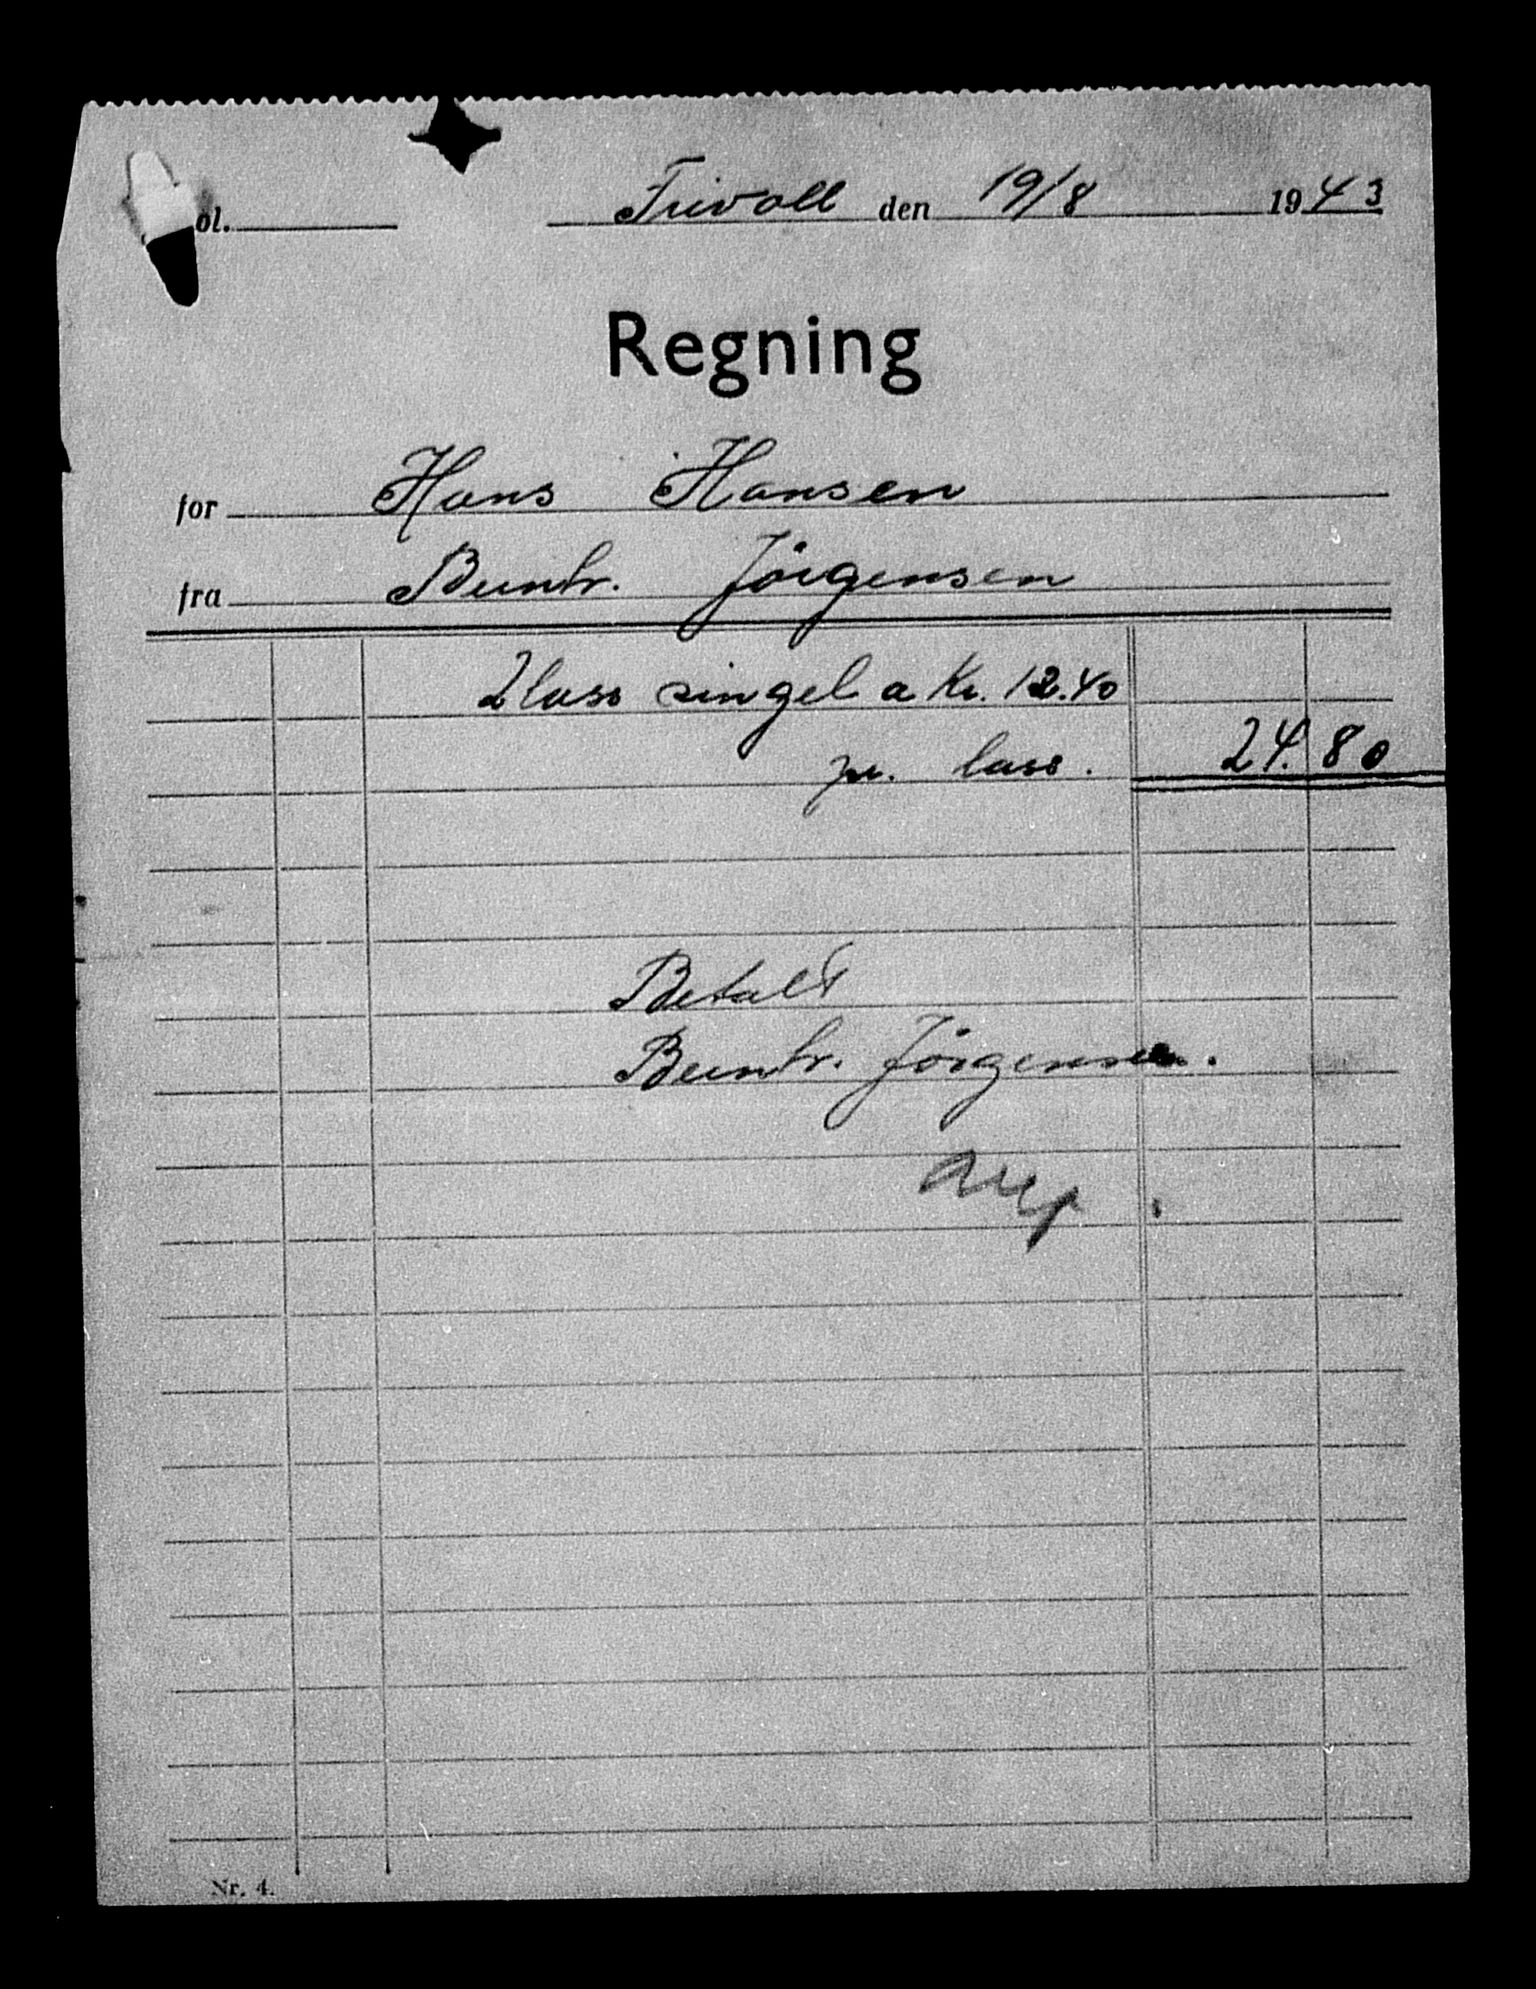 ol. Frivoll den 19/8 1943
Regning
for Hans Hansen
fra Berntr. Jörgensen
2 lass singel a Kr. 12.40
pr. lass. 24.80
Betalt
Berntr. Jörgensen.
Nr. 4.